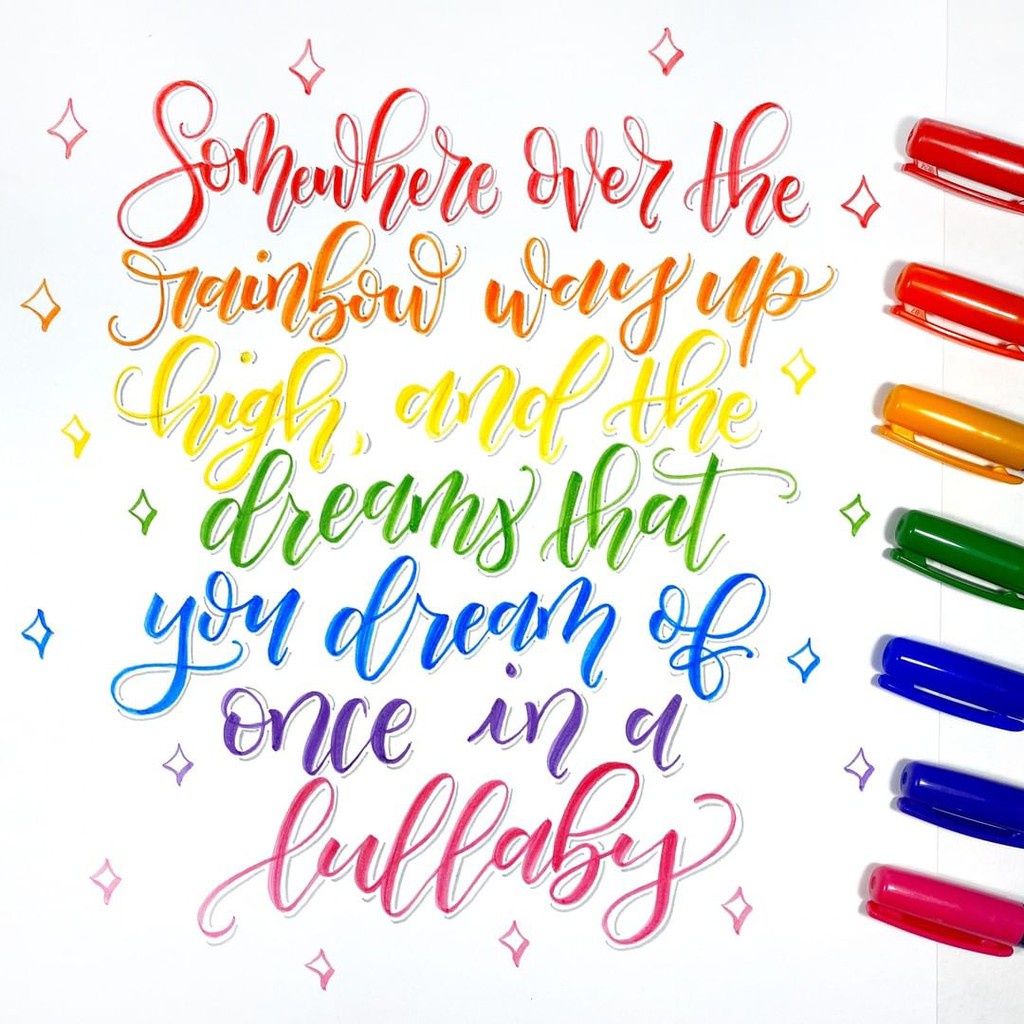 Somewhere over the
rainbow way up
high, and the
dreams that
you dream of
once in a
lullaby